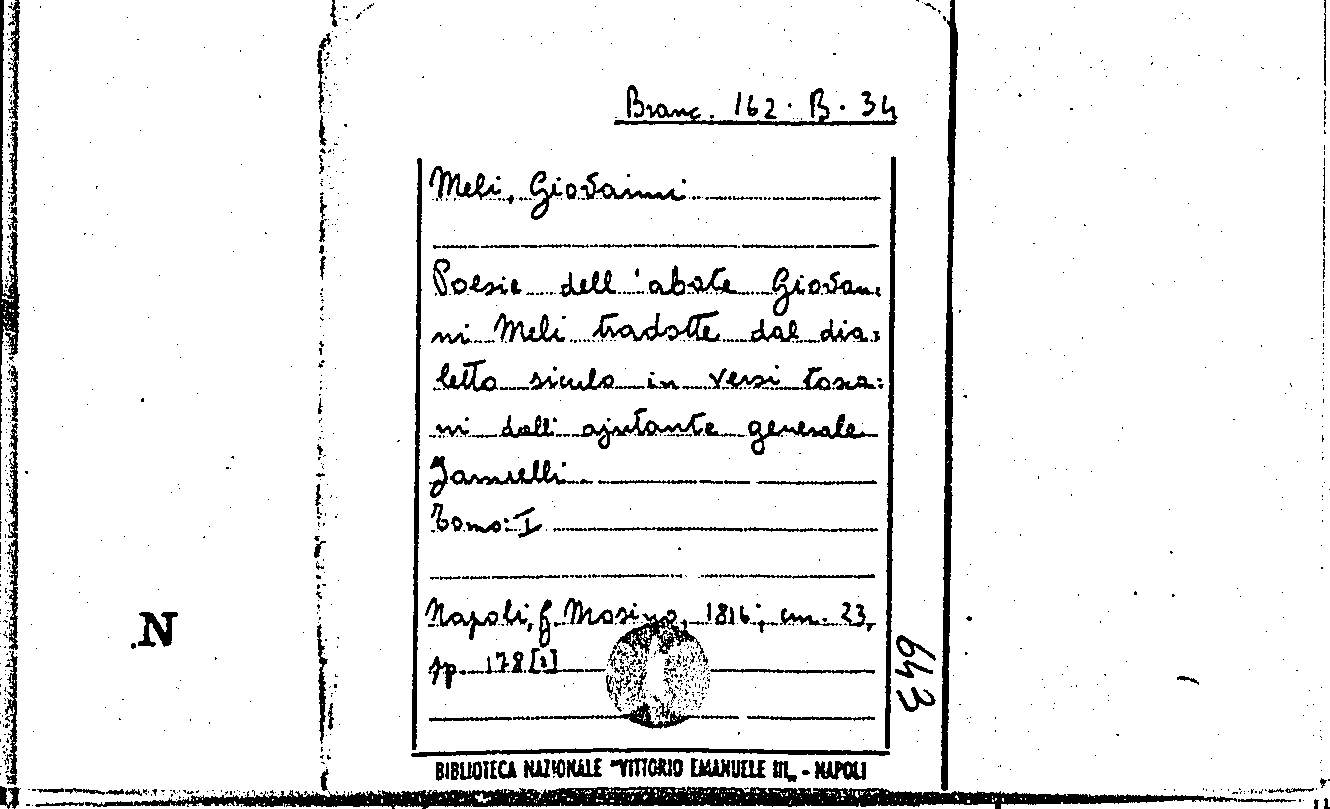 Branc. 162. B. 34
Meli, Giovanni
Poesie dell'abate Giovan:
ni Meli tradotte dal dia:
letto siculo in versi tosca:
ni dall' ajutante generale
Jannelli
Tomo: I
Napoli, G. Mosino, 1816; cm. 23,
pp. 178
643
.N
BIBLIOTECA NAZIONALE "VITTORIO EMANUELE III„ - NAPOLI